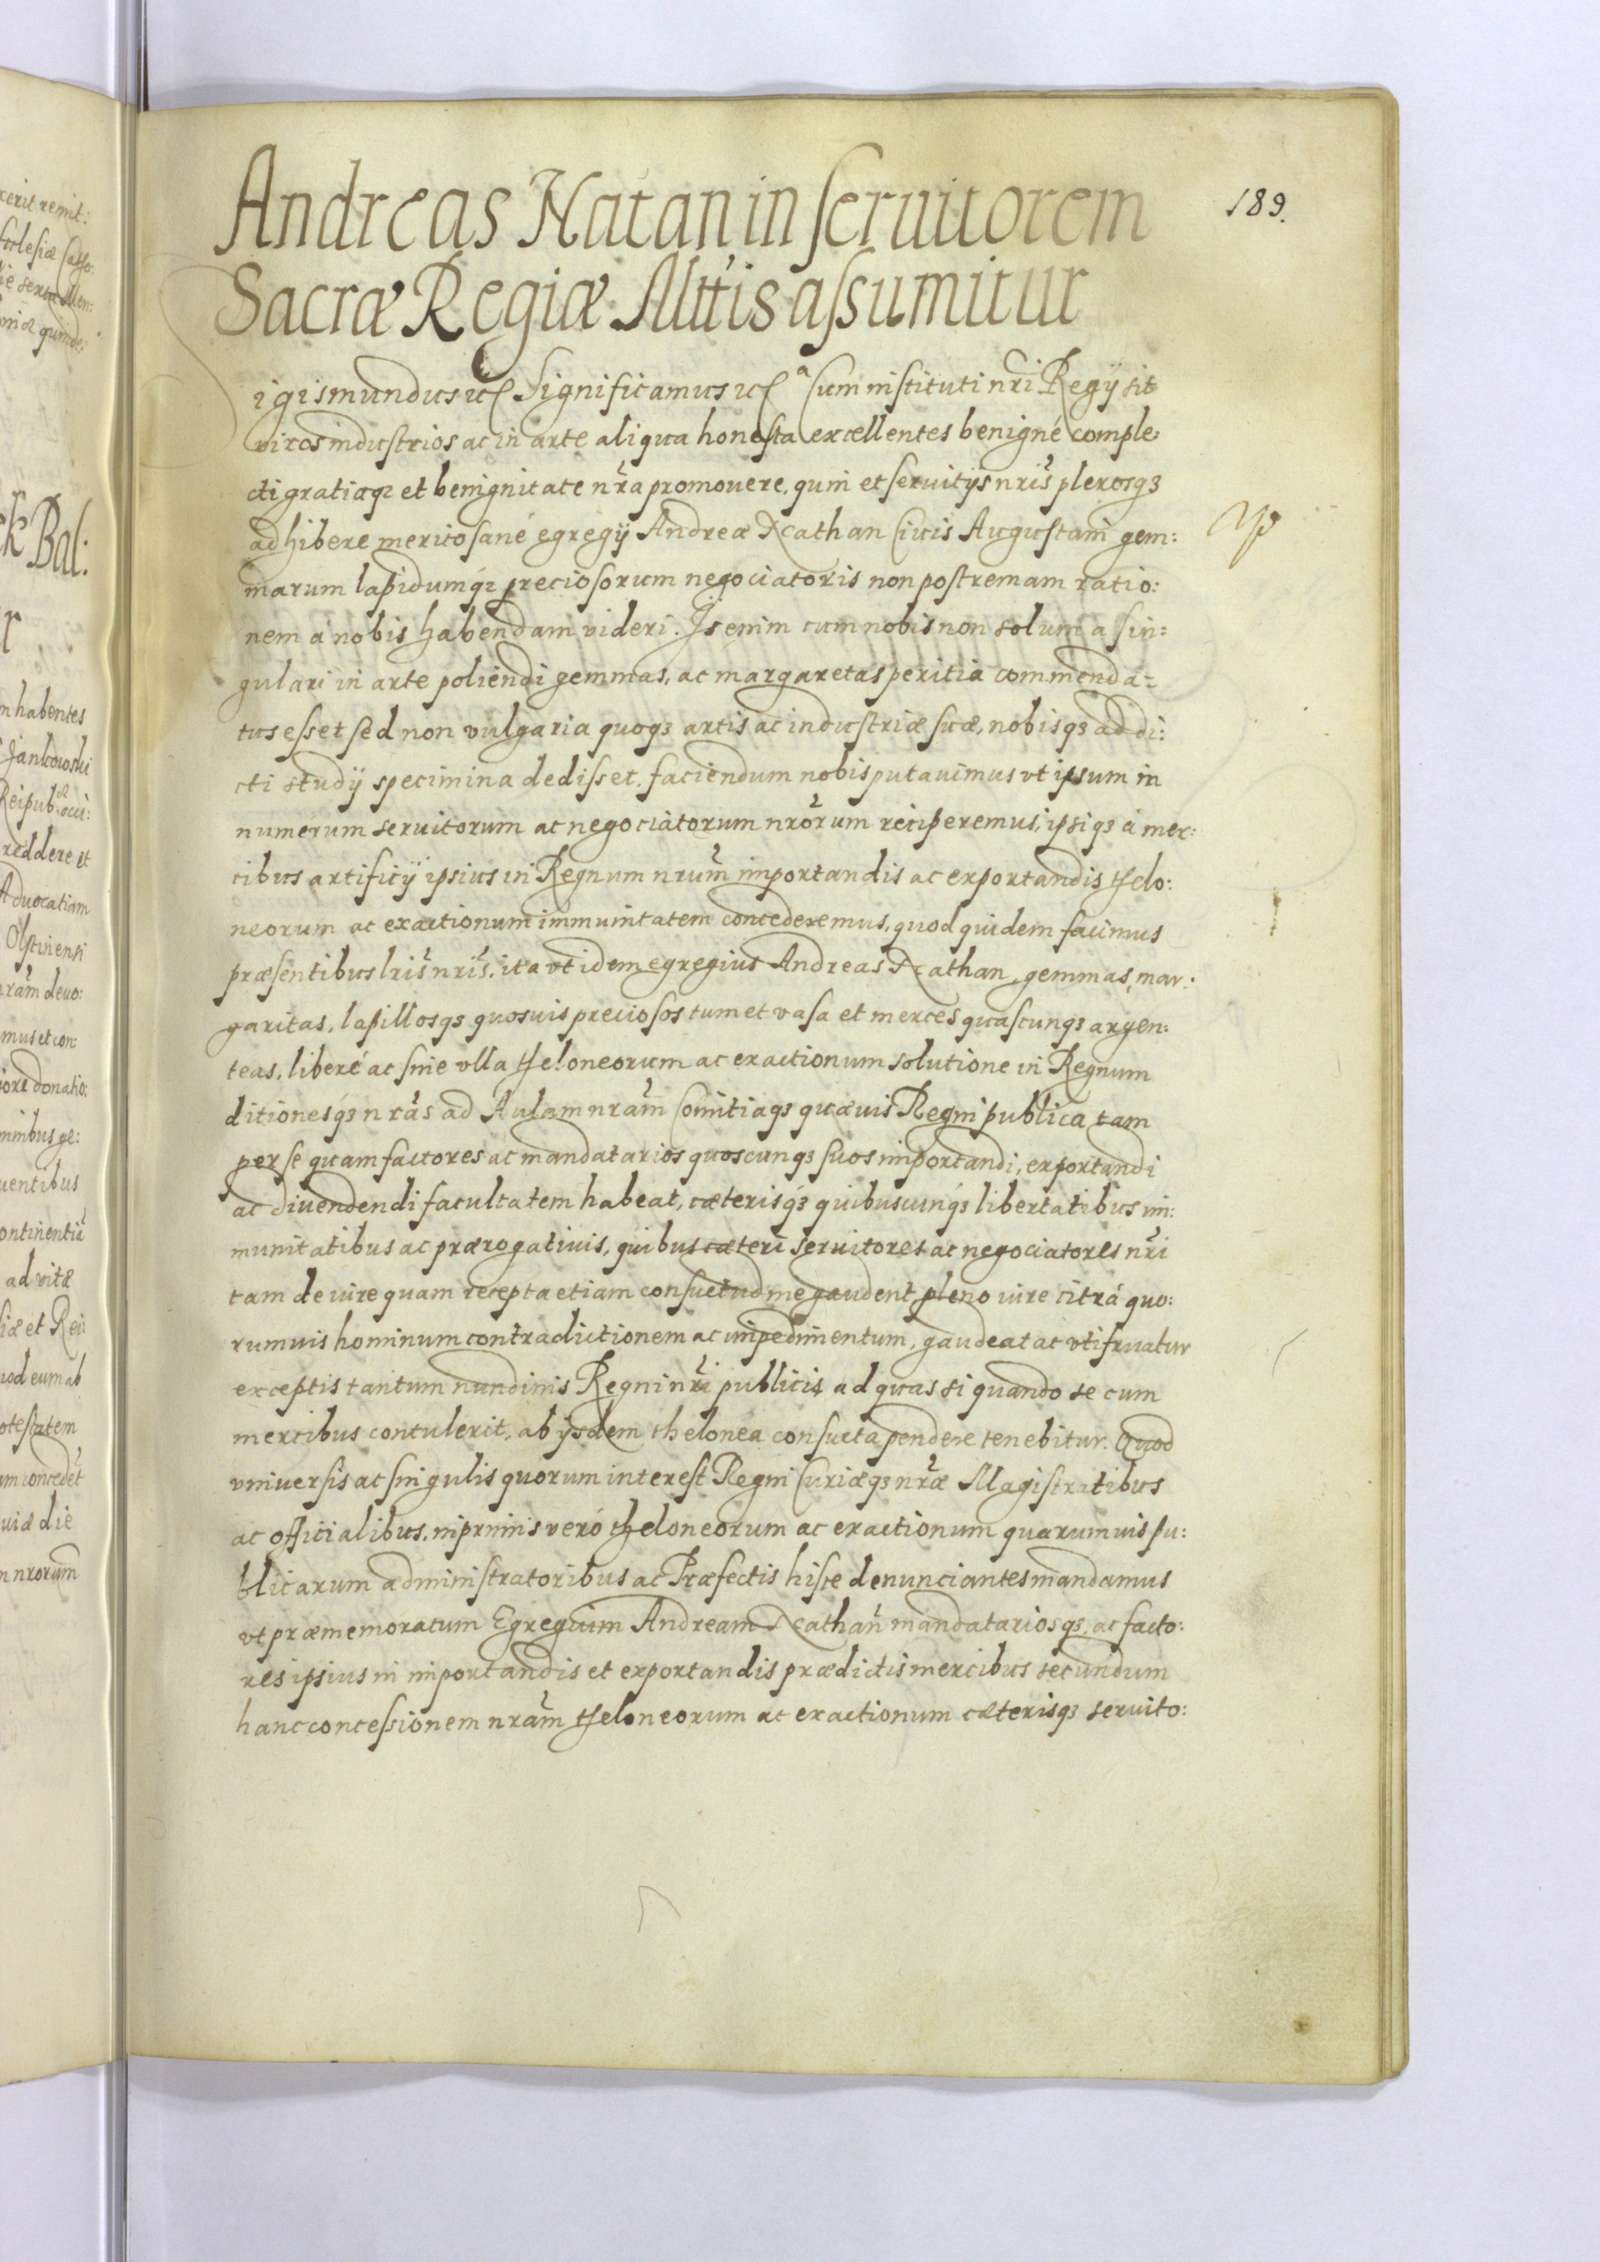 189.
Andreas Natan in seruitorem
Sacræ Regiæ Mttis assumitur
Sigismundus etc Significamus etc Cum instituti nrĩ Regij sit
viros industrios ac in arte aliqua honesta excellentes benignè comple:
cti gratiaqꝫ et benignitate nrã promouere, quin et seruitijs nrĩs plerosqꝫ
adhibere merito sanè egregij Andreæ Nathan Ciuis Augustani gem:
marum lapidumqꝫ preciosorum negociatoris non postremam ratio:
nem a nobis habendam videri. Is enim cum nobis non solum a sin:
gulari in arte poliendi gemmas, ac margaretas peritia commenda:
tus esset sed non vulgaria quoqꝫ artis ac industriæ suæ, nobisqꝫ addi:
cti studij specimina dedisset. faciendum nobis putauimus vt ipsum in
numerum seruitorum ac negociatorum nrõrum reciperemus, ipsiqꝫ à mer:
cibus artificij ipsius in Regnum nrũm importandis ac exportandis thelo:
neorum ac exactionum immunitatem concederemus, quod quidem facimus
præsentibus lrĩs nrĩs, ita vt idem egregius Andreas Nathan, gemmas, mar:
garitas, lapillosqꝫ quosuis preciosos tum et vasa et merces quascunqꝫ argen:
teas, liberè ac sine vlla theloneorum ac exactionum solutione in Regnum
ditionesqꝫ nrãs ad Aulam nrãm Comitiaqꝫ quæuis Regni publica tam
per se quam factores ac mandatarios quoscunqꝫ suos importandi, exportandi
ac diuendendi facultatem habeat, cæterisqꝫ quibuscunqꝫ libertatibus im:
munitatibus ac prærogatiuis, quibus cæteri seruitores ac negociatores nrĩ
tam de iure quam recepta etiam consuetudine gaudent pleno iure citrà quo:
rumuis hominum contradictionem ac impedimentum, gaudeat ac vti fruatur
exceptis tantum nundinis Regni nrĩ publicis ad quas si quando se cum
mercibus contulerit, ab ijsdem thelonea consueta pendere tenebitur. Quod
vniuersis ac singulis quorum interest Regni Curiæqꝫ nræ̃ Magistratibus
ac officialibus, inprimis verò theloneorum ac exactionum quarumuis pu:
blicarum administratoribus ac Præfectis hisce denunciantes mandamus
vt præmemoratum Egregium Andream Nathan mandatariosqꝫ, ac facto:
res ipsius in importandis et exportandis prædictis mercibus secundum
hanc concessionem nrãm theloneorum ac exactionum cæterisqꝫ seruito: